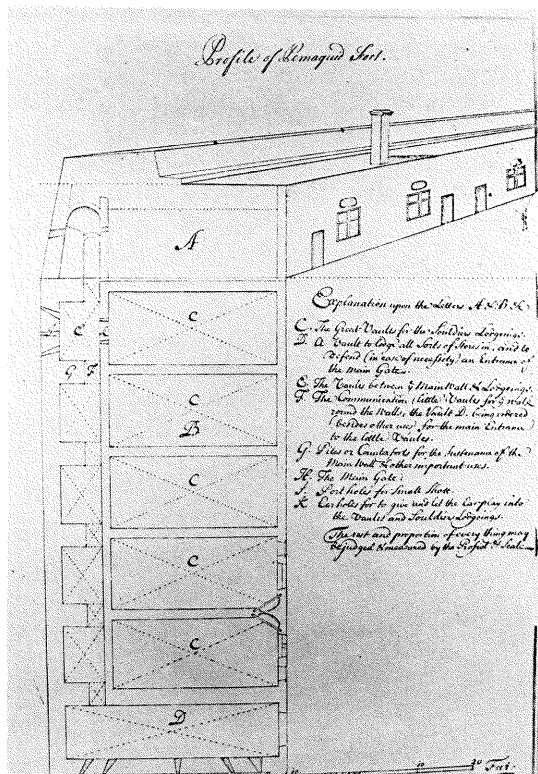 Profile of Pemaquid Fort.
A
C
C
G F
C
B
C
C
C
D
Explanation upon the Letters A & B &
C. The Great Vaults for the Souldiers Lodgings.
D. A Vault to lodge all Sorts of Stores in, and to
Defend (in case of necessity) an Entrance of
the main Gate.
E. The Vaults between ye Main Wall & Lodgings.
F. The Communication (little) Vaults for ye walk
round the Walls; the Vault D. being ordered
(besides other uses) for the main Entrance
to the little Vaults.
G. Piles or Counterforts for the Sustenana of the
Main Wall & other important uses.
H. The Main Gate:
I. Port holes for Small Shott.
K. Earholes for to give and let the Ear play into
the Vaults and Souldiers Lodgings.
The rest and proportion of every thing may
be judged & measured by the Profil & Scale
10 20 Feet.